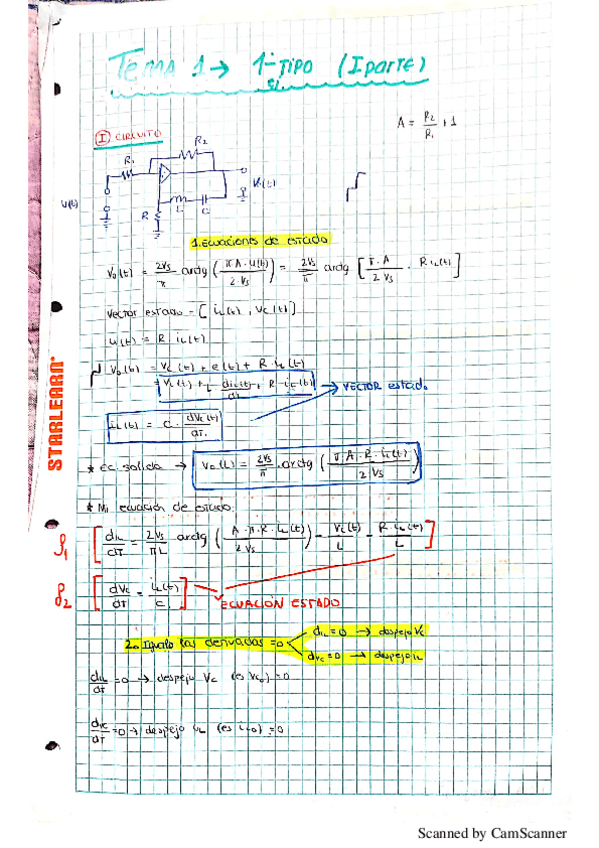 TEMA 1 → 1-TIPO (I parte)
A = R2/R1 + 1
I CIRCUITO
R2
R1
Vo(t)
U(t)
R
L
C
1. Ecuaciones de estado
Vo(t) = 2Vs/π arctg (πA·U(t)/2·Vs) = 2Vs/π arctg [π·A/2Vs · R iL(t)]
Vector estado = [iL(t), Vc(t)]
U(t) = R iL(t)
Vo(t) = VL(t) + e(t) + R·iL(t)
Vc(t) + L diL(t)/dT + R·iL(t) → VECTOR estado
iL(t) = C · dVc(t)/dT
* Ec. salida → Vo(t) = 2Vs/π · arctg (π A·R·iL(t)/2 Vs)
* Mi ecuación de estado
f1 [diL/dT = 2Vs/πL arctg (A·π·R·iL(t)/2Vs) - Vc(t)/L - R·iL(t)/L]
f2 [dVc/dT = iL(t)/C] ECUACIÓN ESTADO
2. Igualo las derivadas = 0
diL = 0 → despejo Vc
dVc = 0 → despejo iL
diL/dT = 0 → despejo Vc (es Vco) = 0
dVc/dT = 0 → despejo iL (es iLo) = 0
STARLEARN
Scanned by CamScanner